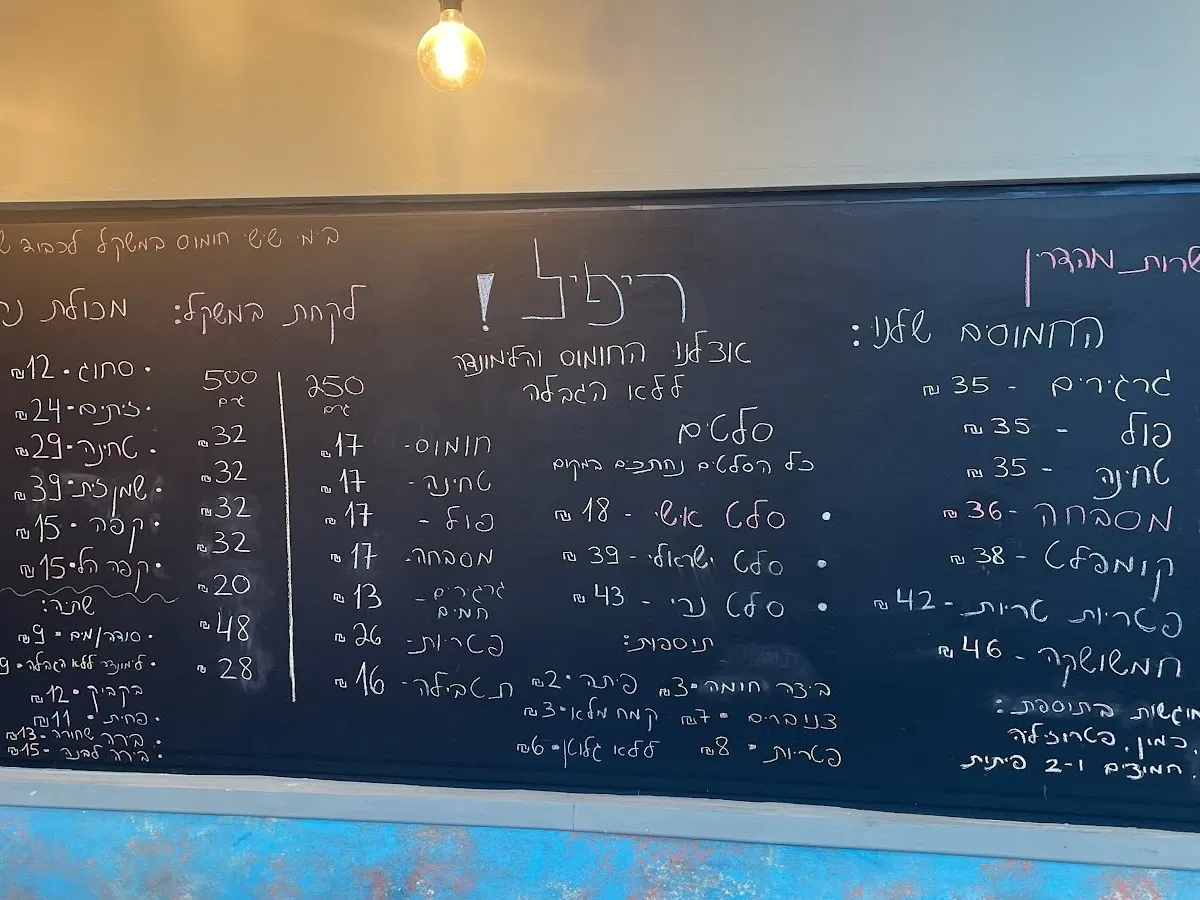 שרות מהדרין
החמוסים שלנו:
גרגירים - 35 ₪
פול - 35 ₪
טחינה - 35 ₪
מסבחה - 36 ₪
קומפלט - 38 ₪
פטריות טריות - 42 ₪
חמשושקה - 46 ₪
מוגשות בתוספת:
כמון, פטרוזיליה
חמוצים ו-2 פיתות
ריפיל!
אצלנו החומוס והלימונדה
ללא הגבלה
סלטים
כל הסלטים נחתכים במקום
• סלט אישי - 18 ₪
• סלט ישראלי - 39 ₪
• סלט נרי - 43 ₪
תוספות:
ביצה חומה • 3 ₪ פיתה • 2 ₪
צנוברים • 7 ₪ קמח מלא • 3 ₪
פטריות • 8 ₪ ללא גלוטן • 6 ₪
בימי שישי חומוס במשקל לכבוד
לקחת במשקל:
250 גרם 500 גרם
חומוס - 17 ₪ 32 ₪
טחינה - 17 ₪ 32 ₪
פול - 17 ₪ 32 ₪
מסבחה - 17 ₪ 32 ₪
גרגירים חמים - 13 ₪ 20 ₪
פטריות - 26 ₪ 48 ₪
תטבילה - 16 ₪ 28 ₪
מכולת
• סחוג • 12 ₪
• זיתים • 24 ₪
• טחינה • 29 ₪
• שמן זית • 39 ₪
• קפה • 15 ₪
• קפה הל • 15 ₪
שתיה:
• סודה/מים • 9 ₪
• לימונדה ללא הגבלה • 9
בקבוק • 12 ₪
• פחית • 11 ₪
• בירה שחורה • 13 ₪
• בירה לבנה • 15 ₪